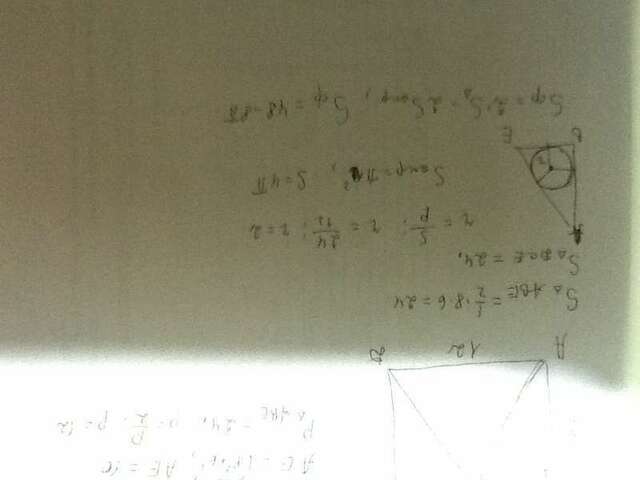 AE = 10
P△ABE = 24, p = P/2; p = 12
A 12 D
S△ABE = 1/2·8·6 = 24
S△DCE = 24.
r = S/p; r = 24/12; r = 2
Sокр = πr², S = 4π
B E
Sф = 2·S△ - 2Sокр, Sф = 48 - 8π